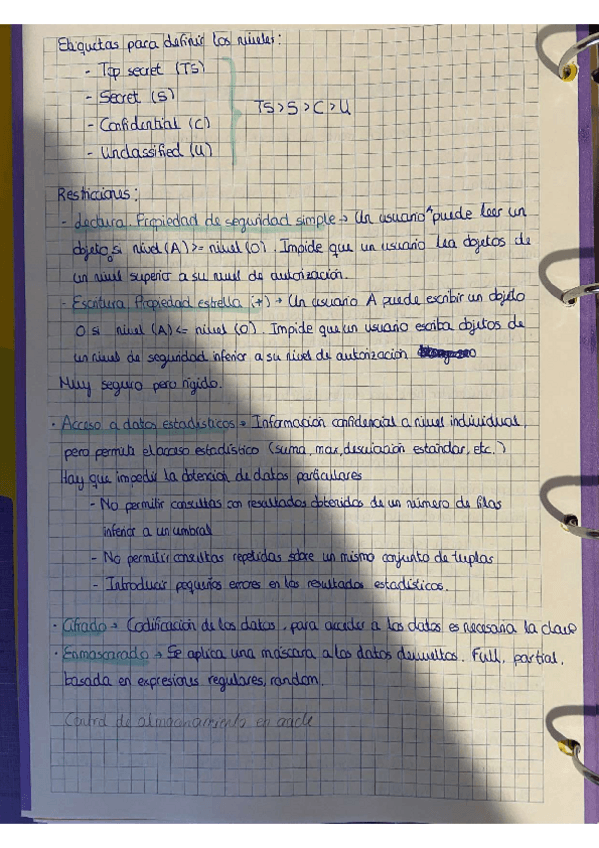 Etiquetas para definir los niveles:
- Top secret (TS)
- Secret (S)
- Confidential (C)
- Unclassified (U)
TS > S > C > U
Restricciones:
- Lectura. Propiedad de seguridad simple → Un usuario A puede leer un
objeto O si nivel (A) >= nivel (O). Impide que un usuario lea objetos de
un nivel superior a su nivel de autorización.
- Escritura. Propiedad estrella (*) → Un usuario A puede escribir un objeto
O si nivel (A) <= nivel (O). Impide que un usuario escriba objetos de
un nivel de seguridad inferior a su nivel de autorización
Muy seguro pero rígido.
· Acceso a datos estadísticos → Información confidencial a nivel individual,
pero permite el acceso estadístico (suma, max, desviación estándar, etc.)
Hay que impedir la obtención de datos particulares
- No permitir consultas con resultados obtenidos de un número de filas
inferior a un umbral
- No permitir consultas repetidas sobre un mismo conjunto de tuplas
- Introducir pequeños errores en los resultados estadísticos.
· Cifrado → Codificación de los datos, para acceder a los datos es necesaria la clave
· Enmascarado → Se aplica una máscara a los datos devueltos. Full, partial,
basada en expresiones regulares, random.
Control de almacenamiento en oracle